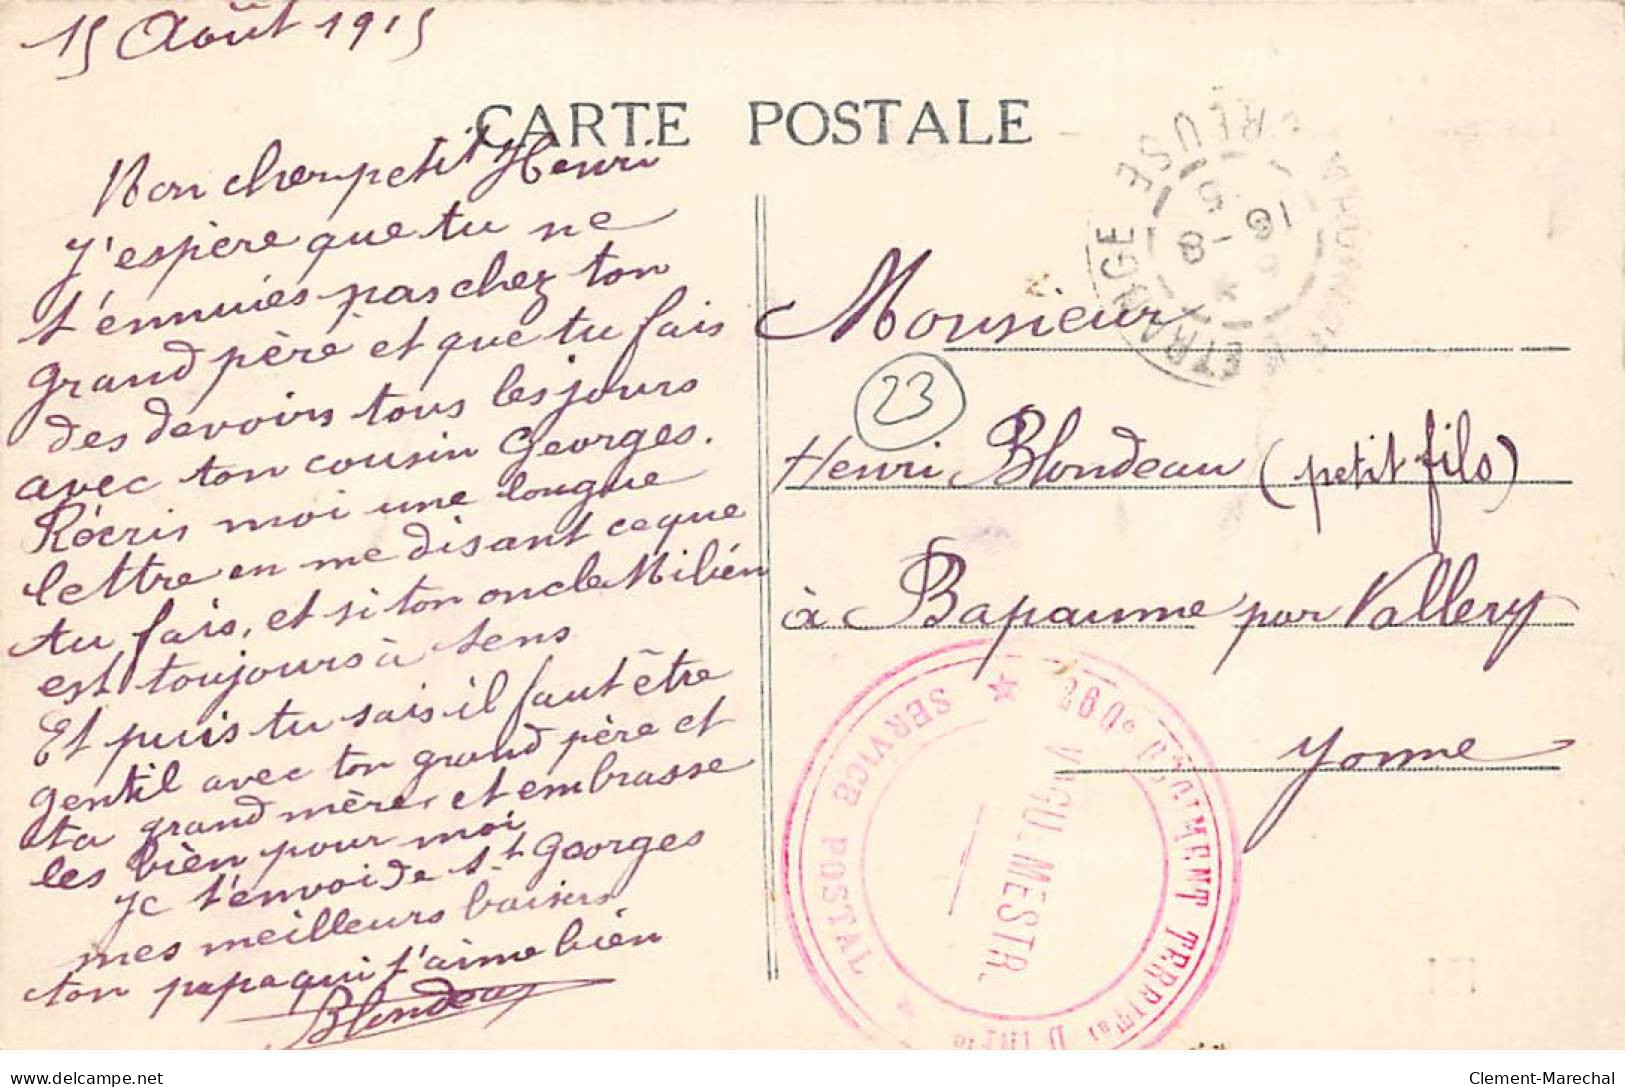 15 Août 1915
CARTE POSTALE
Mon cher petit Henri
J'espère que tu ne
t'ennuies pas chez ton
grand père et que tu fais
des devoirs tous les jours
avec ton cousin Georges.
Récris moi une longue
lettre en me disant ce que
tu fais, et si ton oncle Milien
est toujours à Sens
Et puis tu sais il faut être
gentil avec ton grand père et
ta grand mère, et embrasse
les bien pour moi
Je t'envoi de St Georges
mes meilleurs baisers
ton papa qui t'aime bien
Blondeau
Monsieur
23
Henri Blondeau (petit fils)
à Bapaume par Vallery
Yonne
ETRANGE CREUSE
16 -8
SERVICE POSTAL
VAGUEMESTR.
RÉGIMENT TERRITal D'INFie
Clement-Marechal